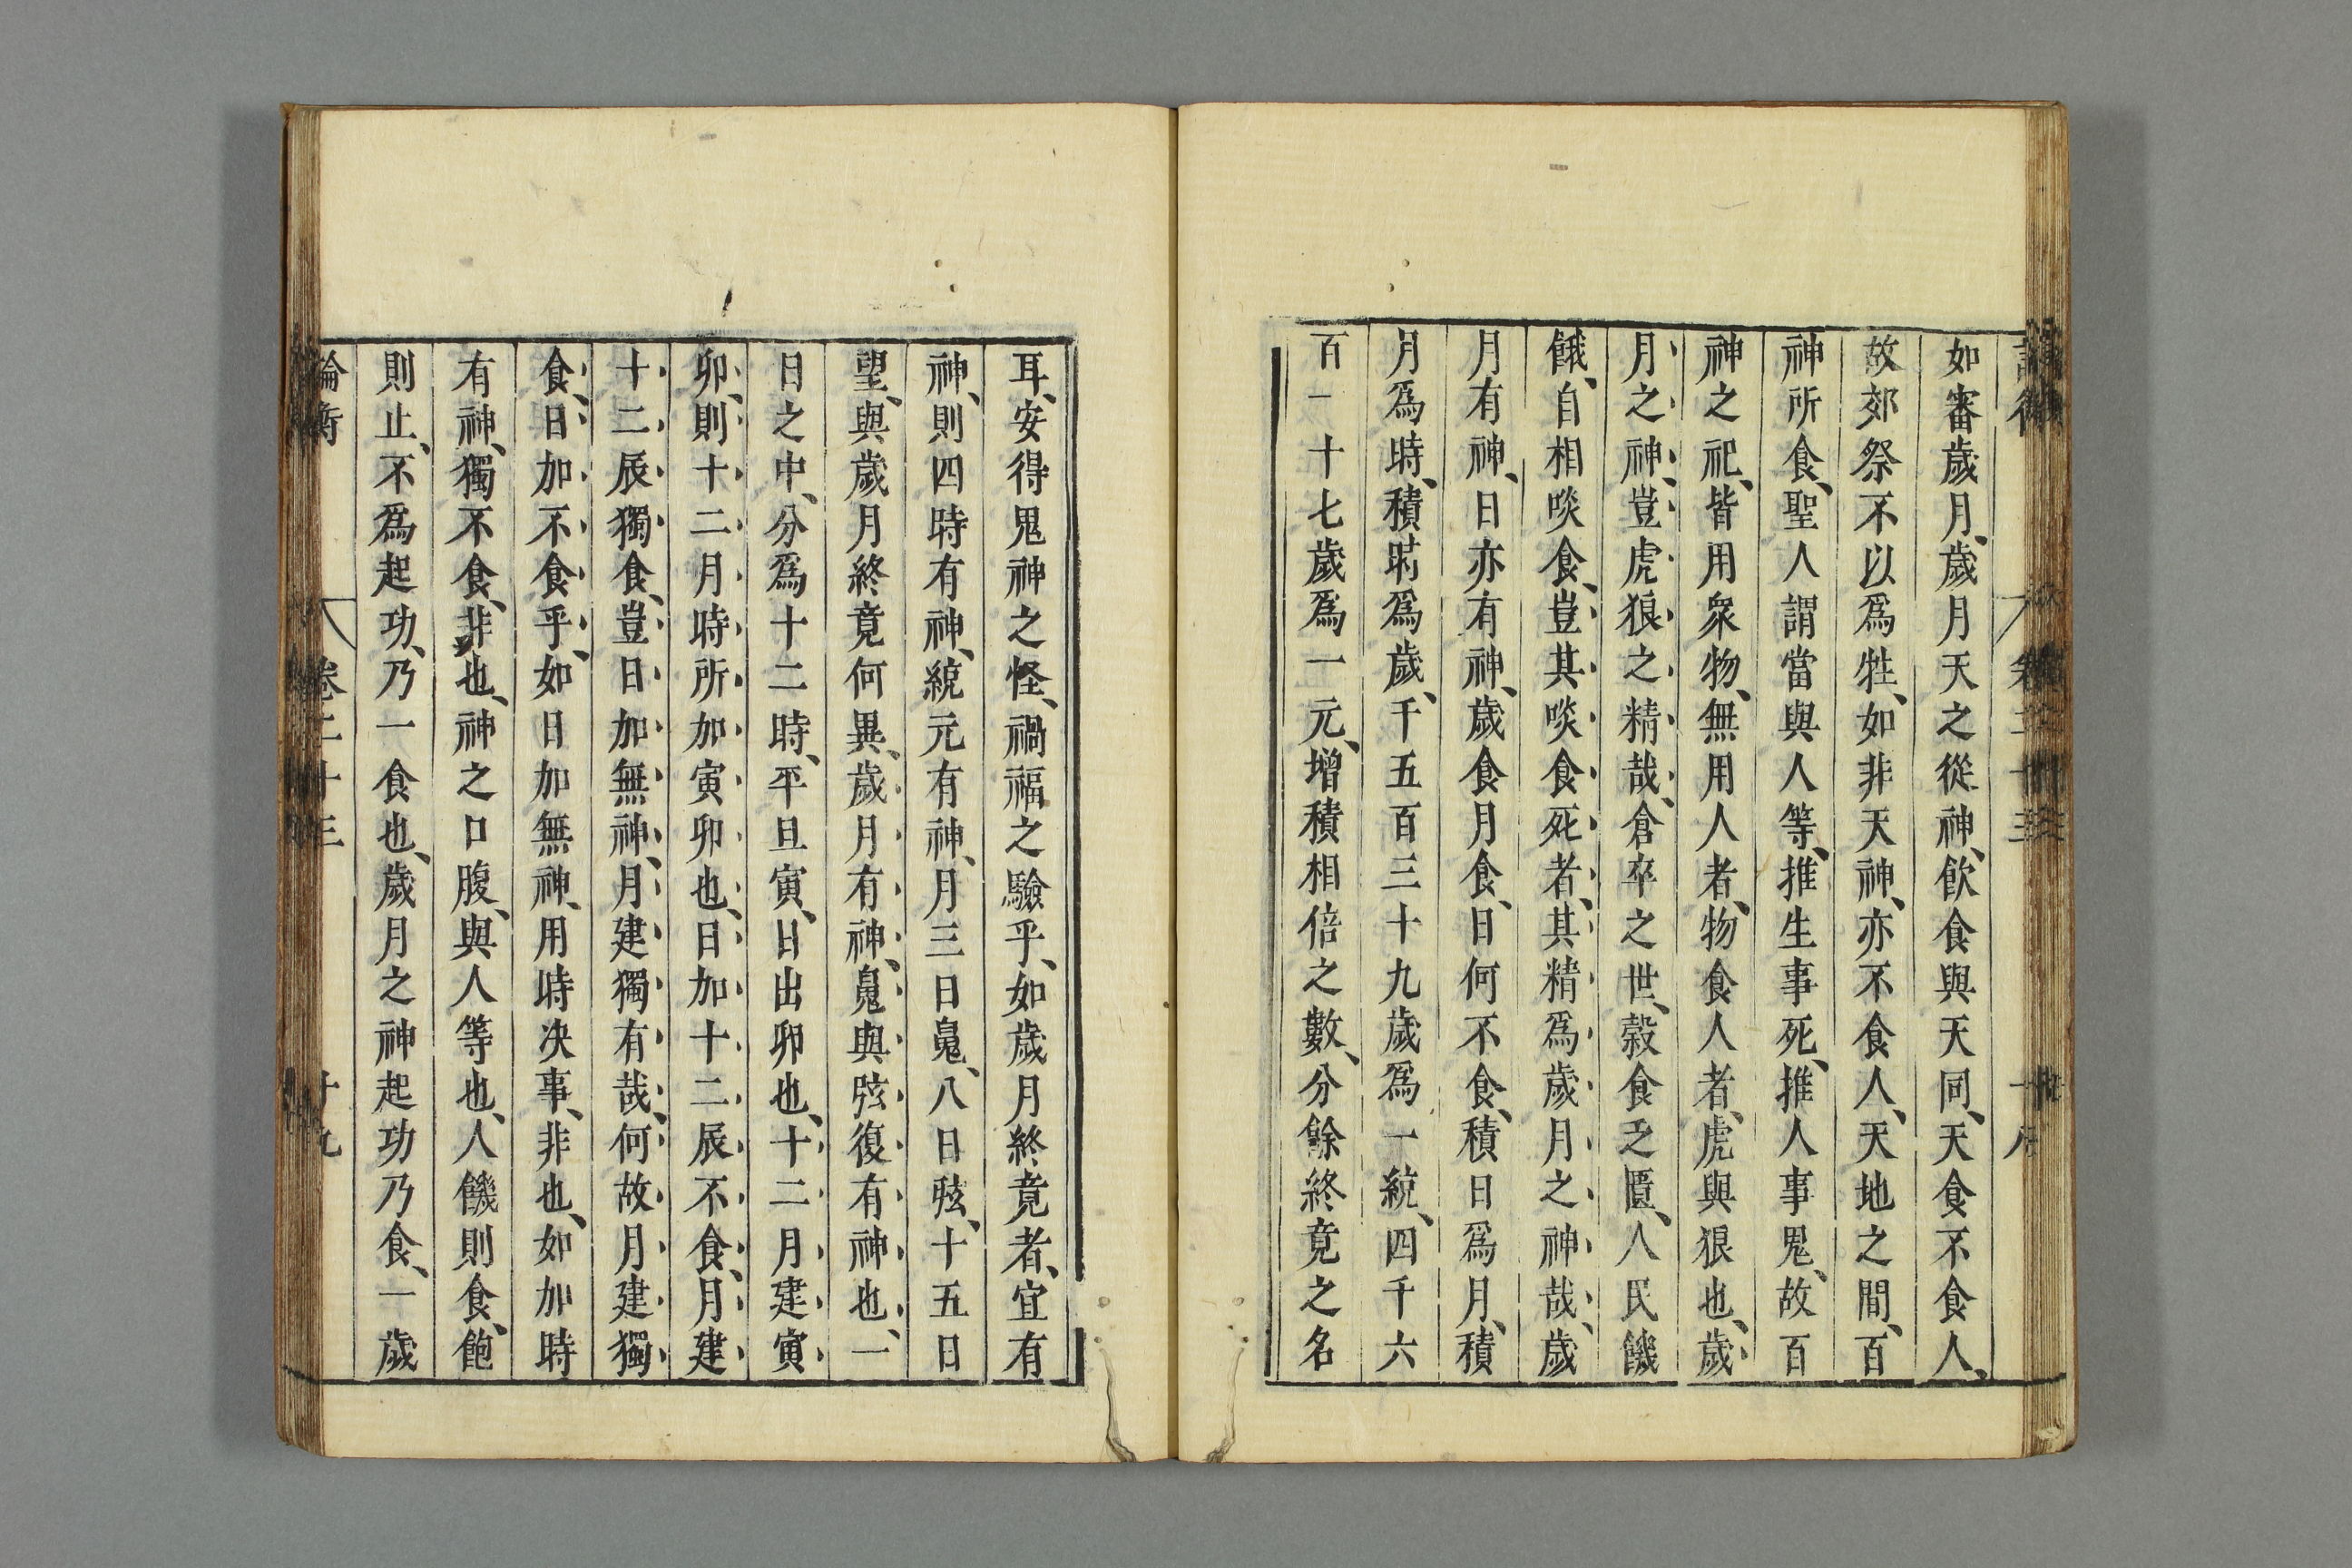 如審歲月、歲月天之從神、飲食與天同、天食不食人、
故郊祭不以爲牲、如非天神、亦不食人、天地之間、百
神所食、聖人謂當與人等、推生事死、推人事鬼、故百
神之祀、皆用衆物、無用人者、物食人者、虎與狼也、歲
月之神、豈虎狼之精哉、倉卒之世、穀食乏匱、人民饑
餓、自相啖食、豈其啖食死者、其精爲歲月之神哉、歲
月有神、日亦有神、歲食月食、日何不食、積日爲月、積
月爲時、積時爲歲、千五百三十九歲爲一統、四千六
百一十七歲爲一元、增積相倍之數、分餘終竟之名
耳、安得鬼神之怪、禍福之驗乎、如歲月終竟者、宜有
神、則四時有神、統元有神、月三日魄、八日弦、十五日
望、與歲月終竟何異、歲月有神、魄與弦復有神也、一
日之中、分爲十二時、平旦寅、日出卯也、十二月建寅
卯、則十二月時所加寅卯也、日加十二辰不食、月建
十二辰獨食、豈日加無神、月建獨有哉、何故月建獨
食、日加不食乎、如日加無神、用時決事、非也、如加時
有神、獨不食、非也、神之口腹、與人等也、人饑則食、飽
則止、不爲起功、乃一食也、歲月之神起功乃食、一歲
論衡 卷二十三 十九